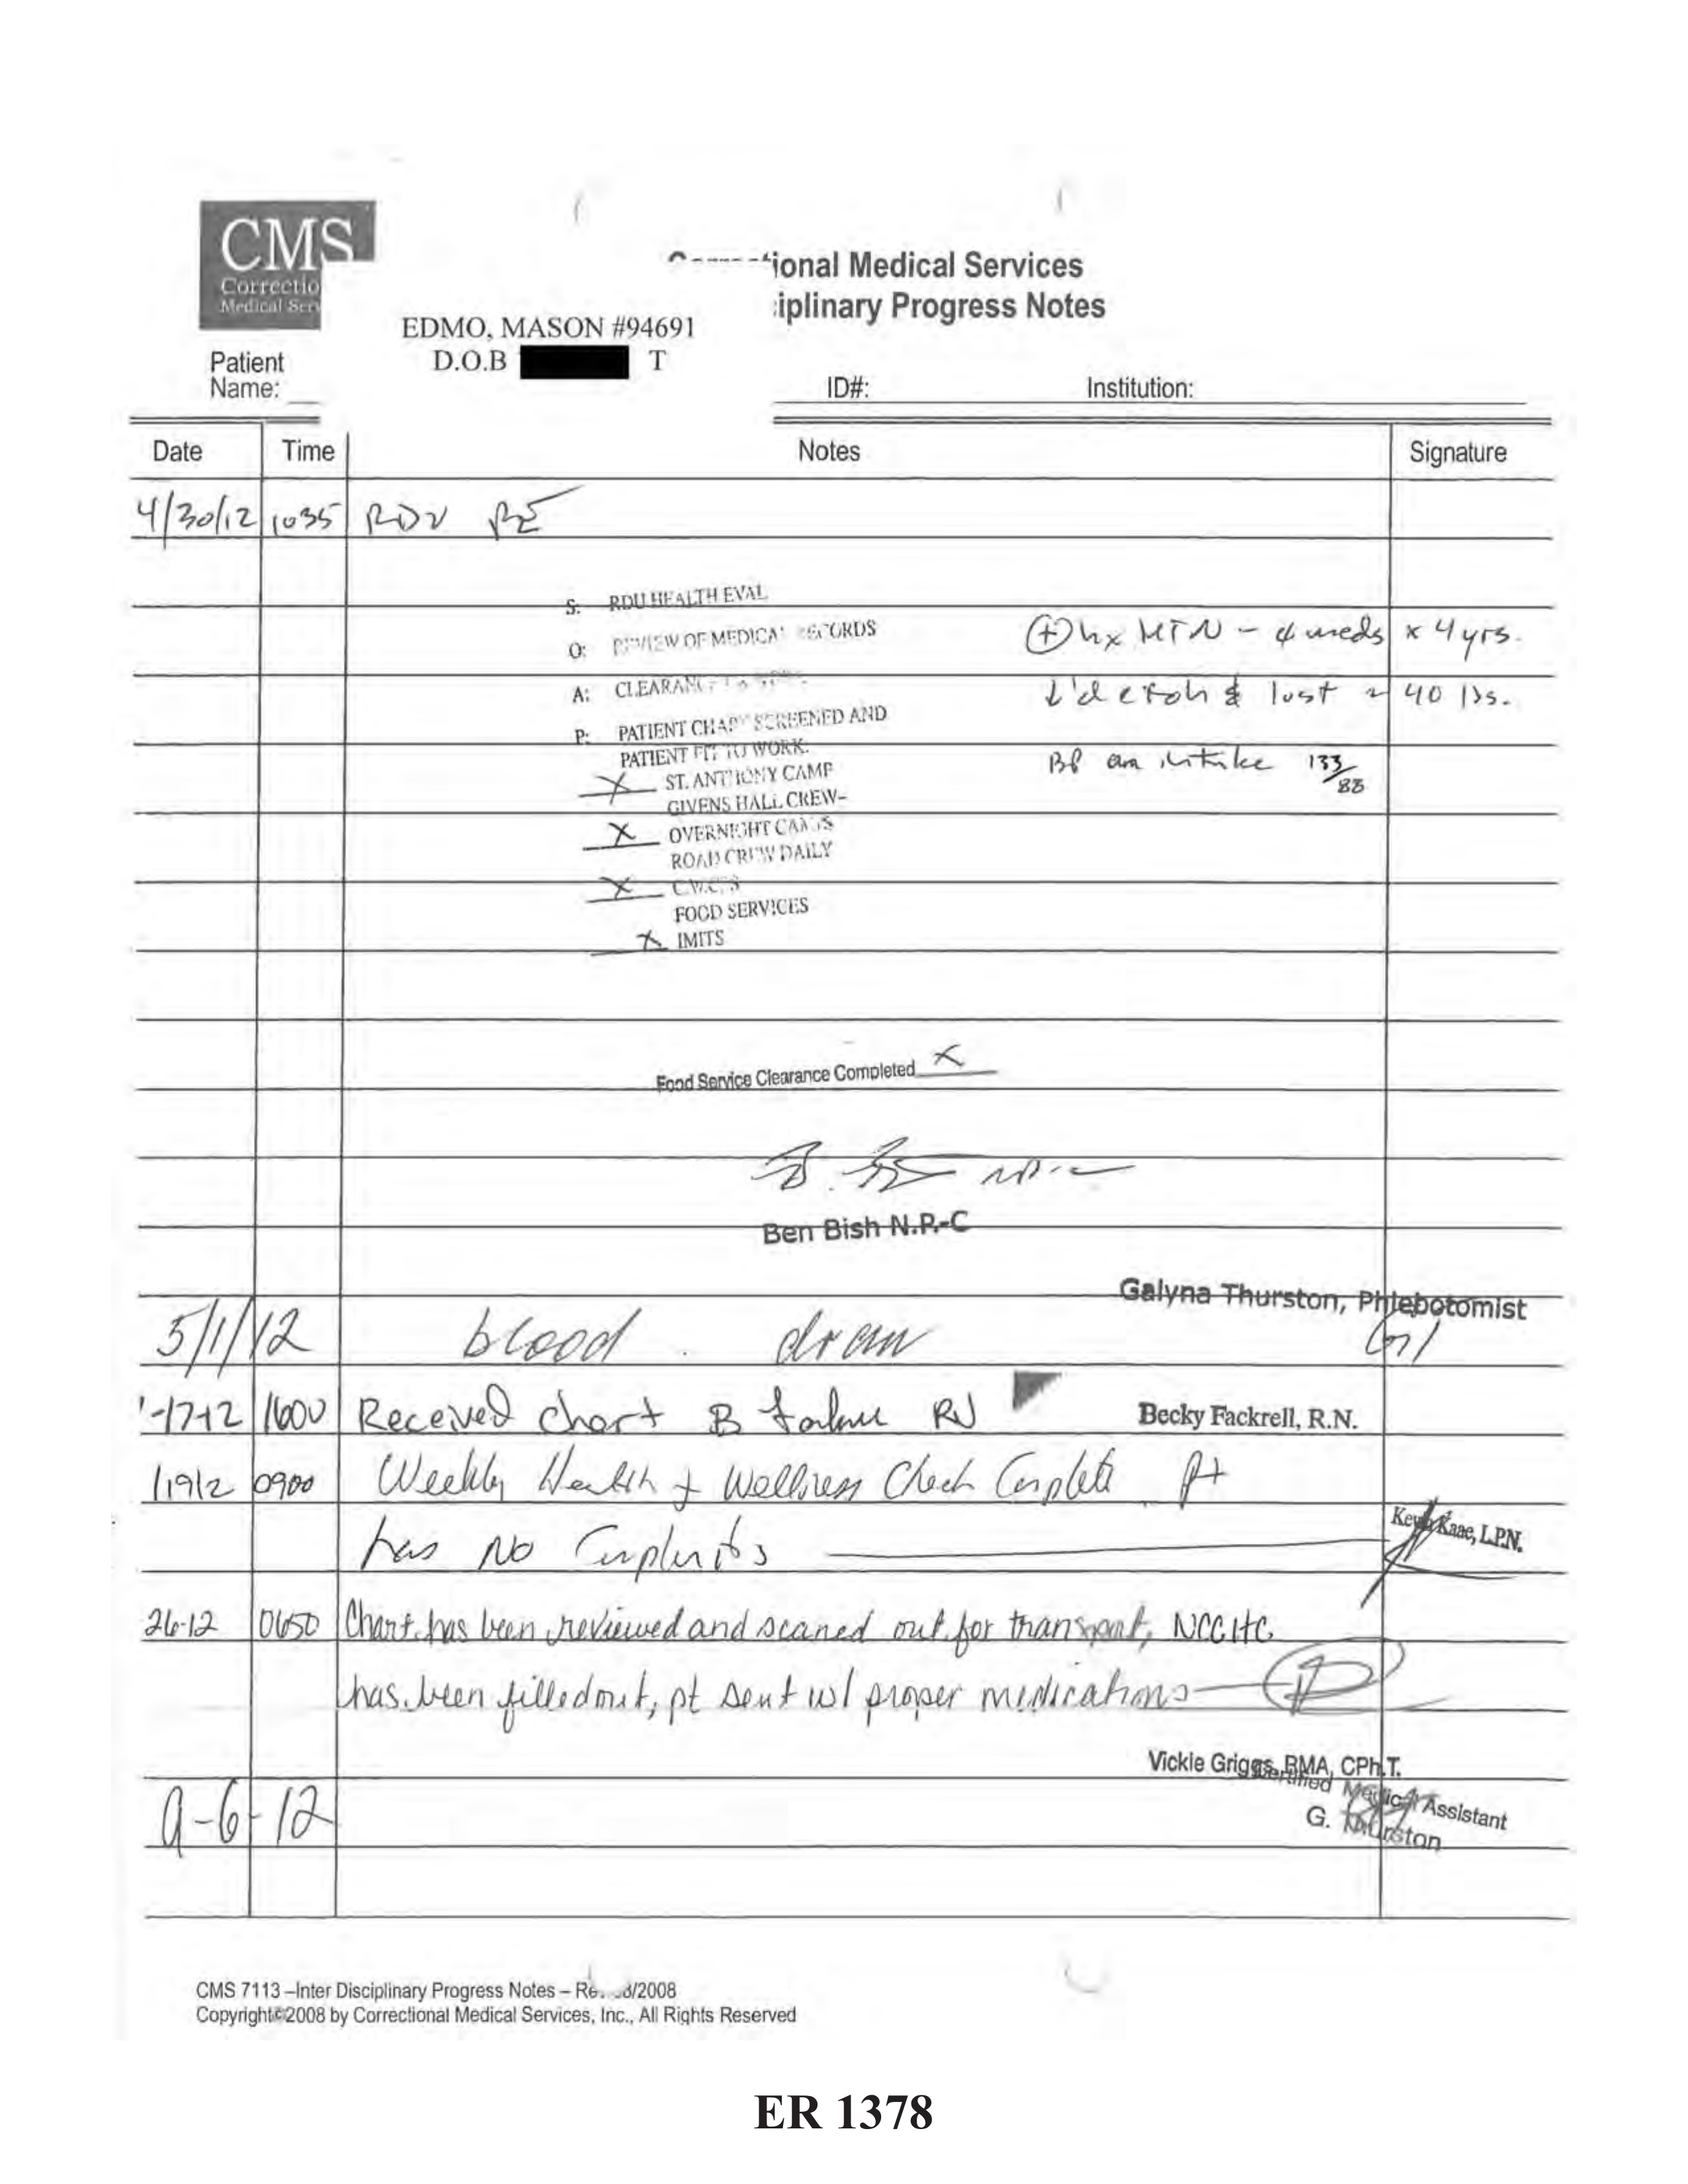 CMS
Correctio
Medical Serv
ional Medical Services
iplinary Progress Notes
EDMO, MASON #94691
D.O.B T
Patient
Name:
ID#: Institution:
Date Time Notes Signature
4/30/12 1035 RDU PE
S: RDU HEALTH EVAL
O: REVIEW OF MEDICAL RECORDS
⊕ hx HTN - meds x 4 yrs.
A: CLEARANCE
↓'d lost ~ 40 lbs.
P: PATIENT CHART SCREENED AND
PATIENT FIT TO WORK:
BP intake 133/83
X ST. ANTHONY CAMP
GIVENS HALL CREW-
X OVERNIGHT CAMPS
ROAD CREW DAILY
X C.W.C.'S
FOOD SERVICES
X IMITS
Food Service Clearance Completed X
Ben Bish N.P.-C
Galyna Thurston, Phlebotomist
5/1/12 blood draw GT
-17-12 1600 Received chart B RN Becky Fackrell, R.N.
0900 Weekly Health + Wellness Check Complete Pt
has No Complaints Kevin Kaae, L.P.N.
26-12 0650 Chart has been reviewed and scaned out for transport, NCCHC
has been filled out, pt sent w/ proper medications
Vickie Griggs, RMA, CPh.T.
Certified Medical Assistant
9-6-12 G. Thurston
CMS 7113 –Inter Disciplinary Progress Notes – Re /2008
Copyright©2008 by Correctional Medical Services, Inc., All Rights Reserved
ER 1378